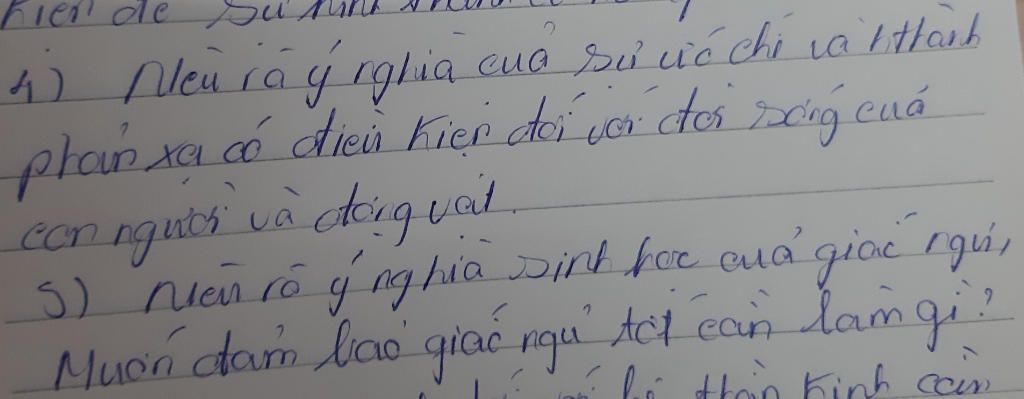 kiện để sự hình thành
4) Nêu rõ ý nghĩa của sự ức chế và hthành
phản xạ có điều kiện đối với đời sống của
con người và động vật.
5) Nêu rõ ý nghĩa sinh học của giấc ngủ,
Muốn đảm bảo giấc ngủ tốt cần làm gì?
hệ thần kinh cần